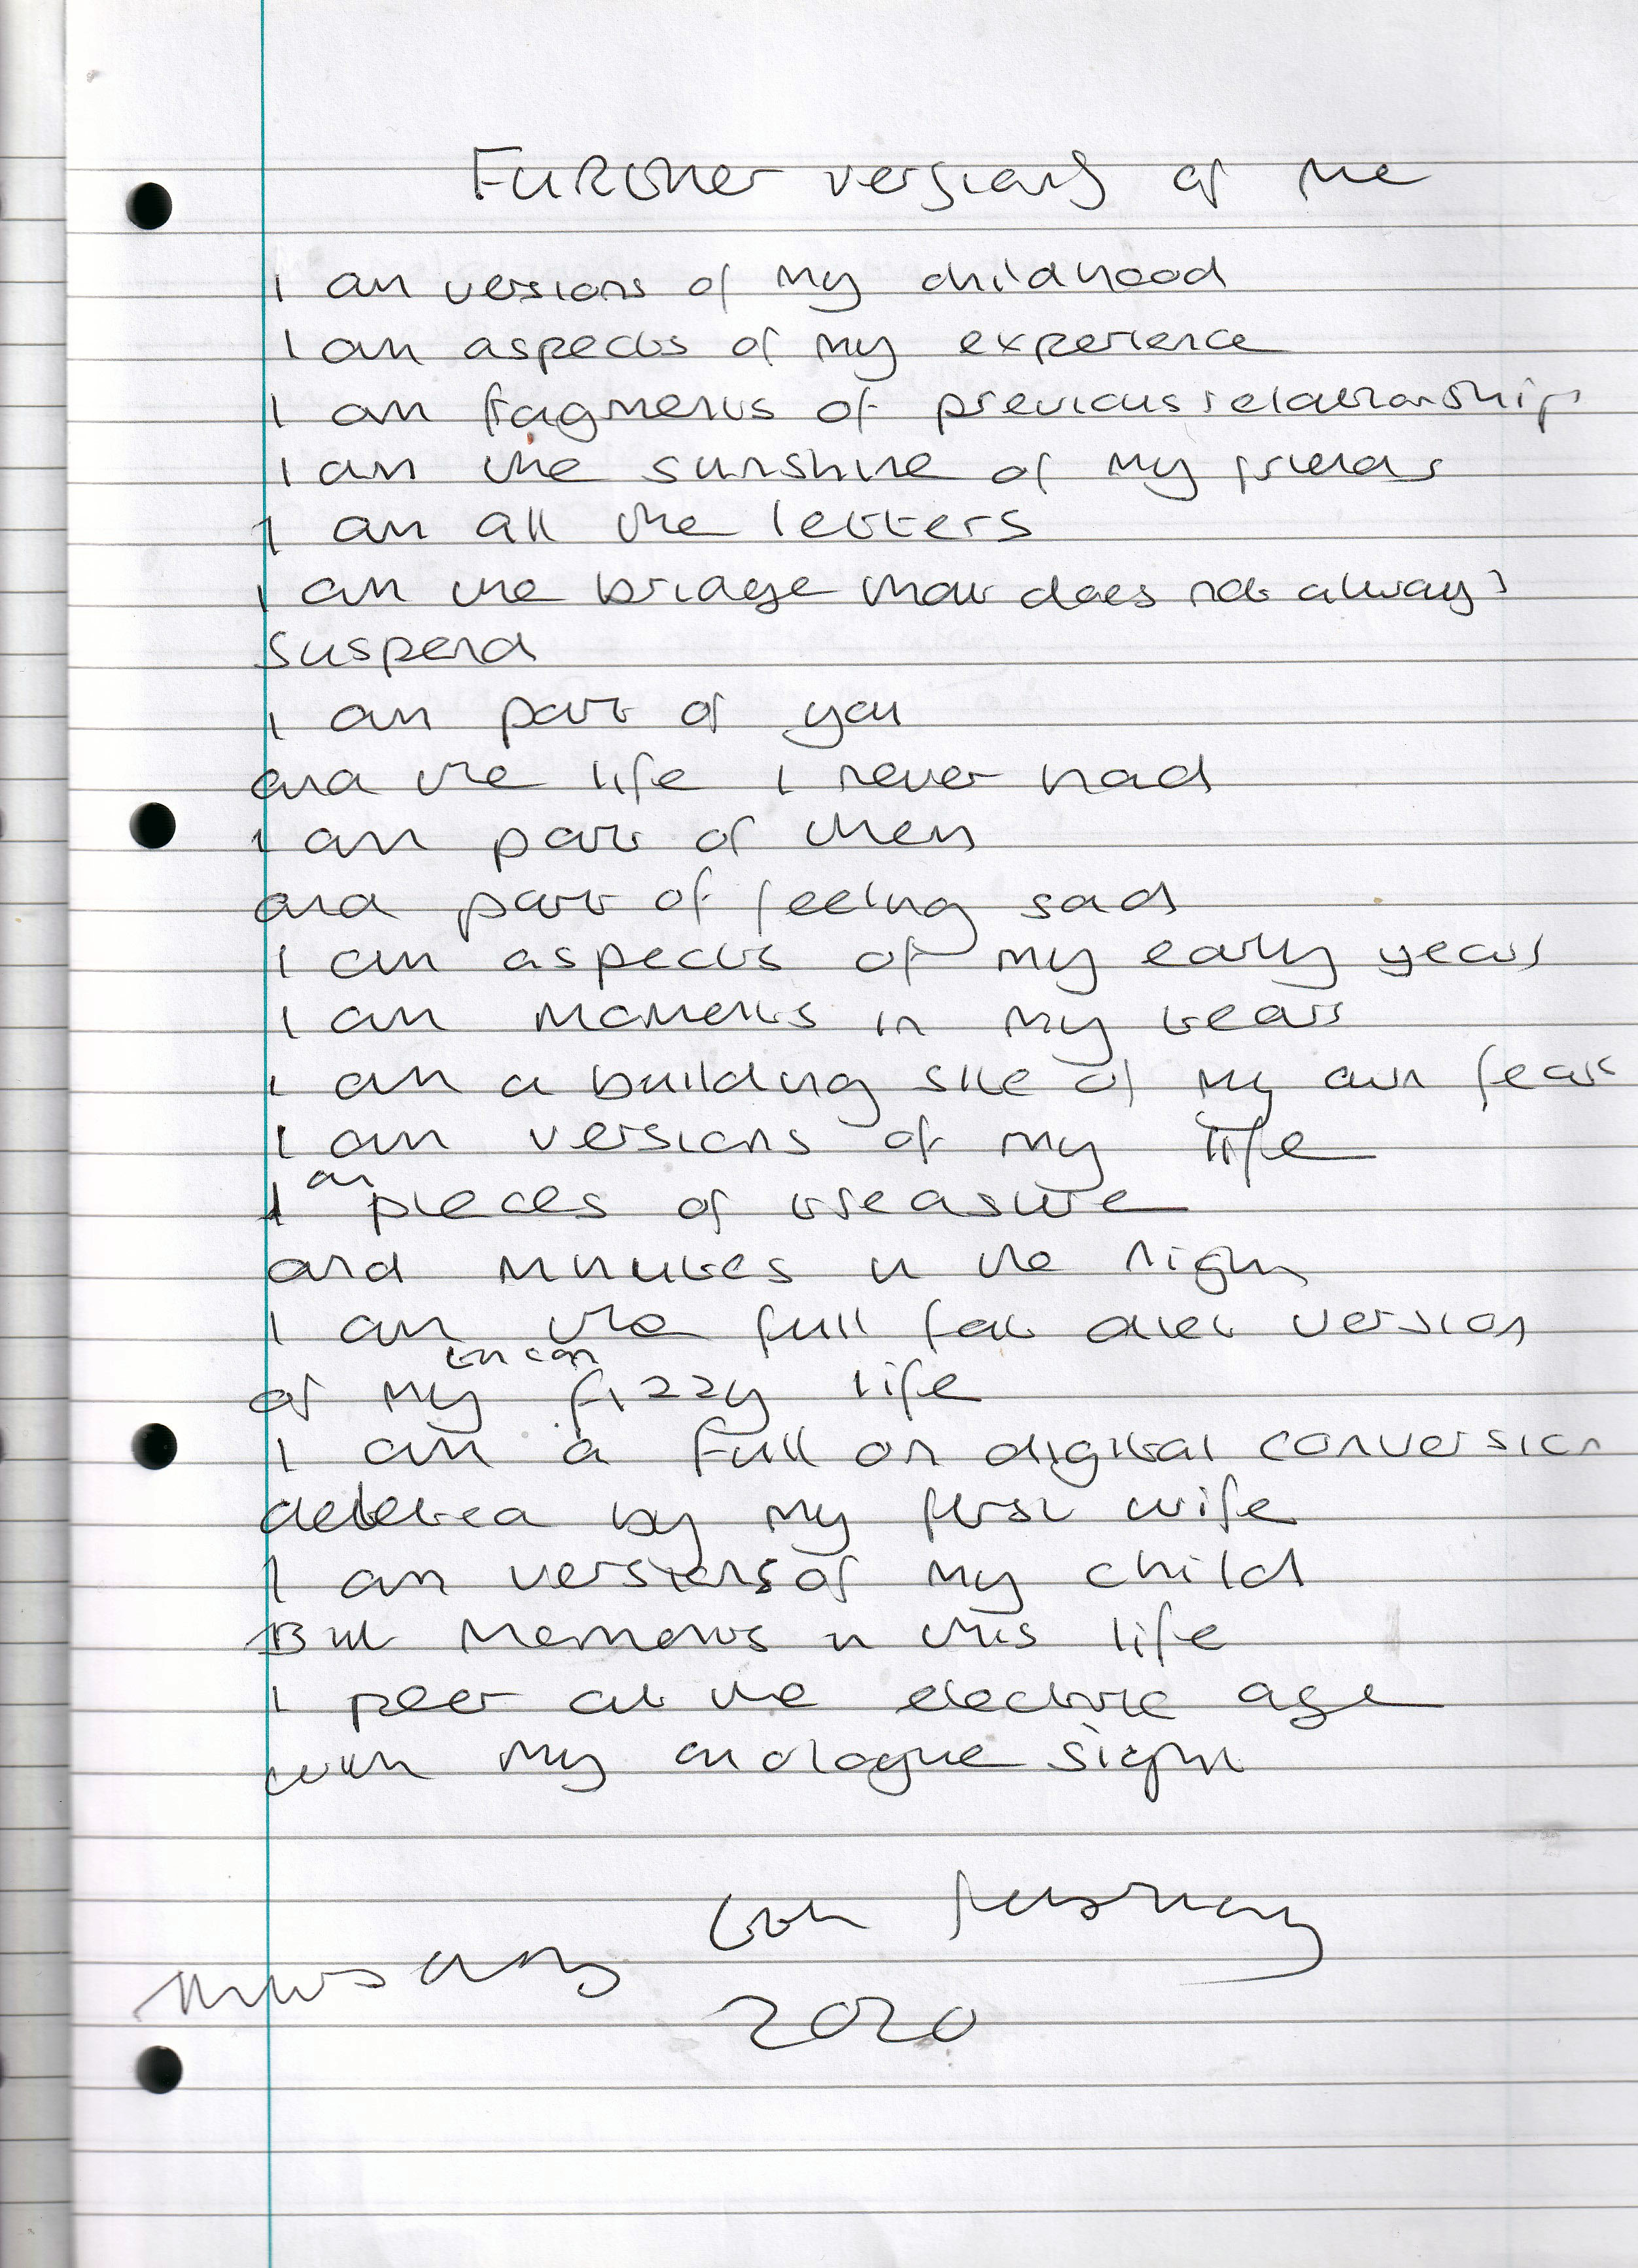 Further versions of me
I am versions of my childhood
I am aspects of my experience
I am fragments of previous relationships
I am the sunshine of my friends
I am all the letters
I am the bridge that does not always
suspend
I am part of you
and the life I never had
I am part of them
and part of feeling sad
I am aspects of my early years
I am moments in my tears
I am a building site of my own fears
I am versions of my life
I am pieces of treasure
and minutes in the night
I am the full fat diet version
of my fizzy life
I am a full on digital conversion
deleted by my first wife
I am versions of my child
But moments in this life
I peer at the electric age
with my analogue sight
6th February
2020